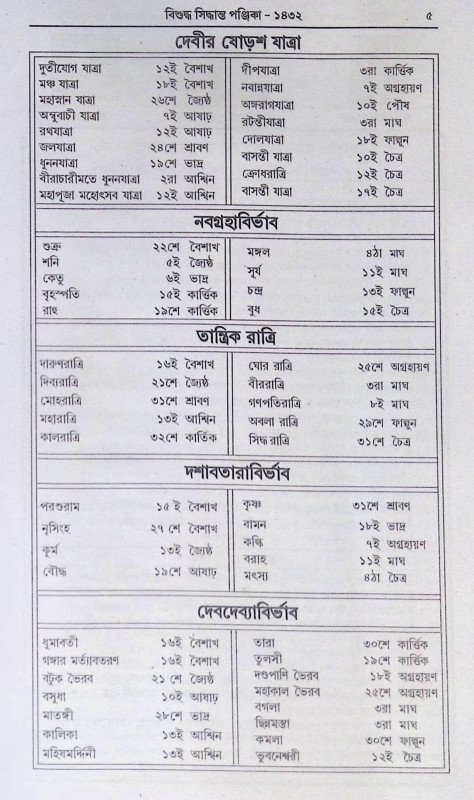 বিশুদ্ধ সিদ্ধান্ত পঞ্জিকা - ১৪৩২ ৫
দেবীর ষোড়শ যাত্রা
দূতীযোগ যাত্রা ১২ই বৈশাখ
মঞ্চ যাত্রা ১৮ই বৈশাখ
মহাস্নান যাত্রা ২৬শে জ্যৈষ্ঠ
অম্বুবাচী যাত্রা ৭ই আষাঢ়
রথযাত্রা ১২ই আষাঢ়
জলযাত্রা ২৪শে শ্রাবণ
ধুননযাত্রা ১৯শে ভাদ্র
বীরাচারীমতে ধুননযাত্রা ২রা আশ্বিন
মহাপূজা মহোৎসব যাত্রা ১২ই আশ্বিন
দীপযাত্রা ৩রা কার্ত্তিক
নবান্নযাত্রা ৭ই অগ্রহায়ণ
অঙ্গরাগযাত্রা ১০ই পৌষ
রটন্তীযাত্রা ৩রা মাঘ
দোলযাত্রা ১৮ই ফাল্গুন
বাসন্তী যাত্রা ১০ই চৈত্র
ক্রোধরাত্রি ১২ই চৈত্র
বাসন্তী যাত্রা ১৭ই চৈত্র
নবগ্রহাবির্ভাব
শুক্র ২২শে বৈশাখ
শনি ৫ই জ্যৈষ্ঠ
কেতু ৬ই ভাদ্র
বৃহস্পতি ১৫ই কার্ত্তিক
রাহু ১৯শে কার্ত্তিক
মঙ্গল ৪ঠা মাঘ
সূর্য ১১ই মাঘ
চন্দ্র ১৩ই ফাল্গুন
বুধ ১৫ই চৈত্র
তান্ত্রিক রাত্রি
দারুণরাত্রি ১৬ই বৈশাখ
দিব্যরাত্রি ২১শে জ্যৈষ্ঠ
মোহরাত্রি ৩১শে শ্রাবণ
মহারাত্রি ১৩ই আশ্বিন
কালরাত্রি ৩২শে কার্তিক
ঘোর রাত্রি ২৫শে অগ্রহায়ণ
বীররাত্রি ৩রা মাঘ
গণপতিরাত্রি ৮ই মাঘ
অবলা রাত্রি ২৯শে ফাল্গুন
সিদ্ধ রাত্রি ৩১শে চৈত্র
দশাবতারাবির্ভাব
পরশুরাম ১৫ ই বৈশাখ
নৃসিংহ ২৭ শে বৈশাখ
কূর্ম ১৩ই জ্যৈষ্ঠ
বৌদ্ধ ১৯শে আষাঢ়
কৃষ্ণ ৩১শে শ্রাবণ
বামন ১৮ই ভাদ্র
কল্কি ৭ই অগ্রহায়ণ
বরাহ ১১ই মাঘ
মৎস্য ৪ঠা চৈত্র
দেবদেব্যাবির্ভাব
ধুমাবতী ১৬ই বৈশাখ
গঙ্গার মর্ত্যাবতরণ ১৬ই বৈশাখ
বটুক ভৈরব ২১ শে জ্যৈষ্ঠ
বসুধা ১০ই আষাঢ়
মাতঙ্গী ২৮শে ভাদ্র
কালিকা ১৩ই আশ্বিন
মহিষমর্দ্দিনী ১৩ই আশ্বিন
তারা ৩০শে কার্ত্তিক
তুলসী ১৯শে কার্ত্তিক
দণ্ডপাণি ভৈরব ১৮ই অগ্রহায়ণ
মহাকাল ভৈরব ২৫শে অগ্রহায়ণ
বগলা ৩রা মাঘ
ছিন্নমস্তা ৩রা মাঘ
কমলা ৩০শে ফাল্গুন
ভুবনেশ্বরী ১২ই চৈত্র